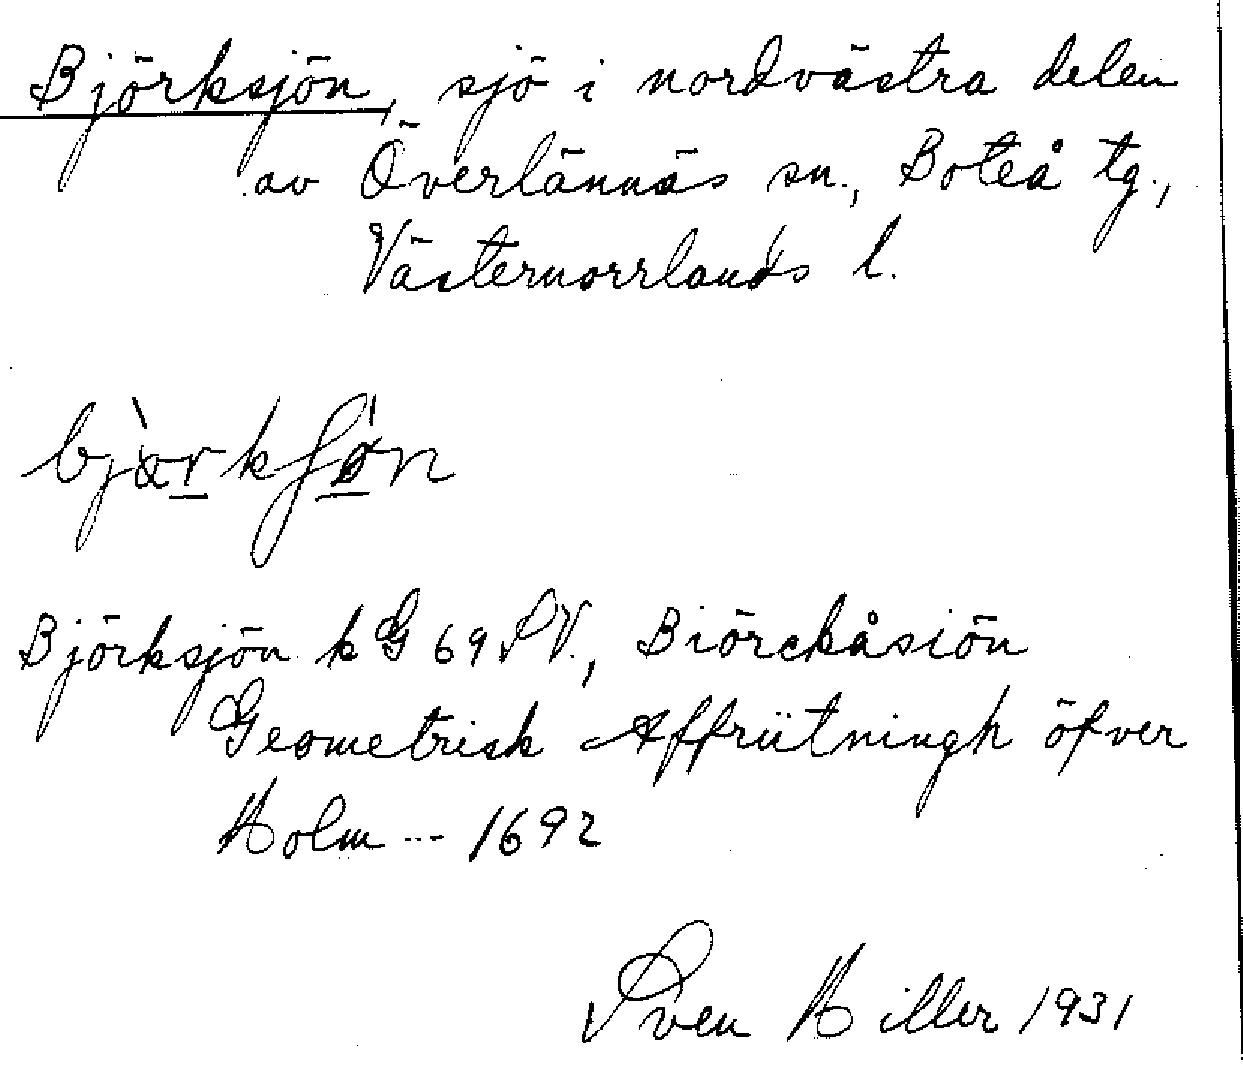 Björksjön, sjö i nordvästra delen
av Överlännäs sn., Boteå tg.,
Västernorrlands l.
bjàrkʃøn
Björksjön kG 69 SV., Biörckåsiön
Geometrisk Affriitningh öfver
Holm --- 1692
Sven Hiller 1931